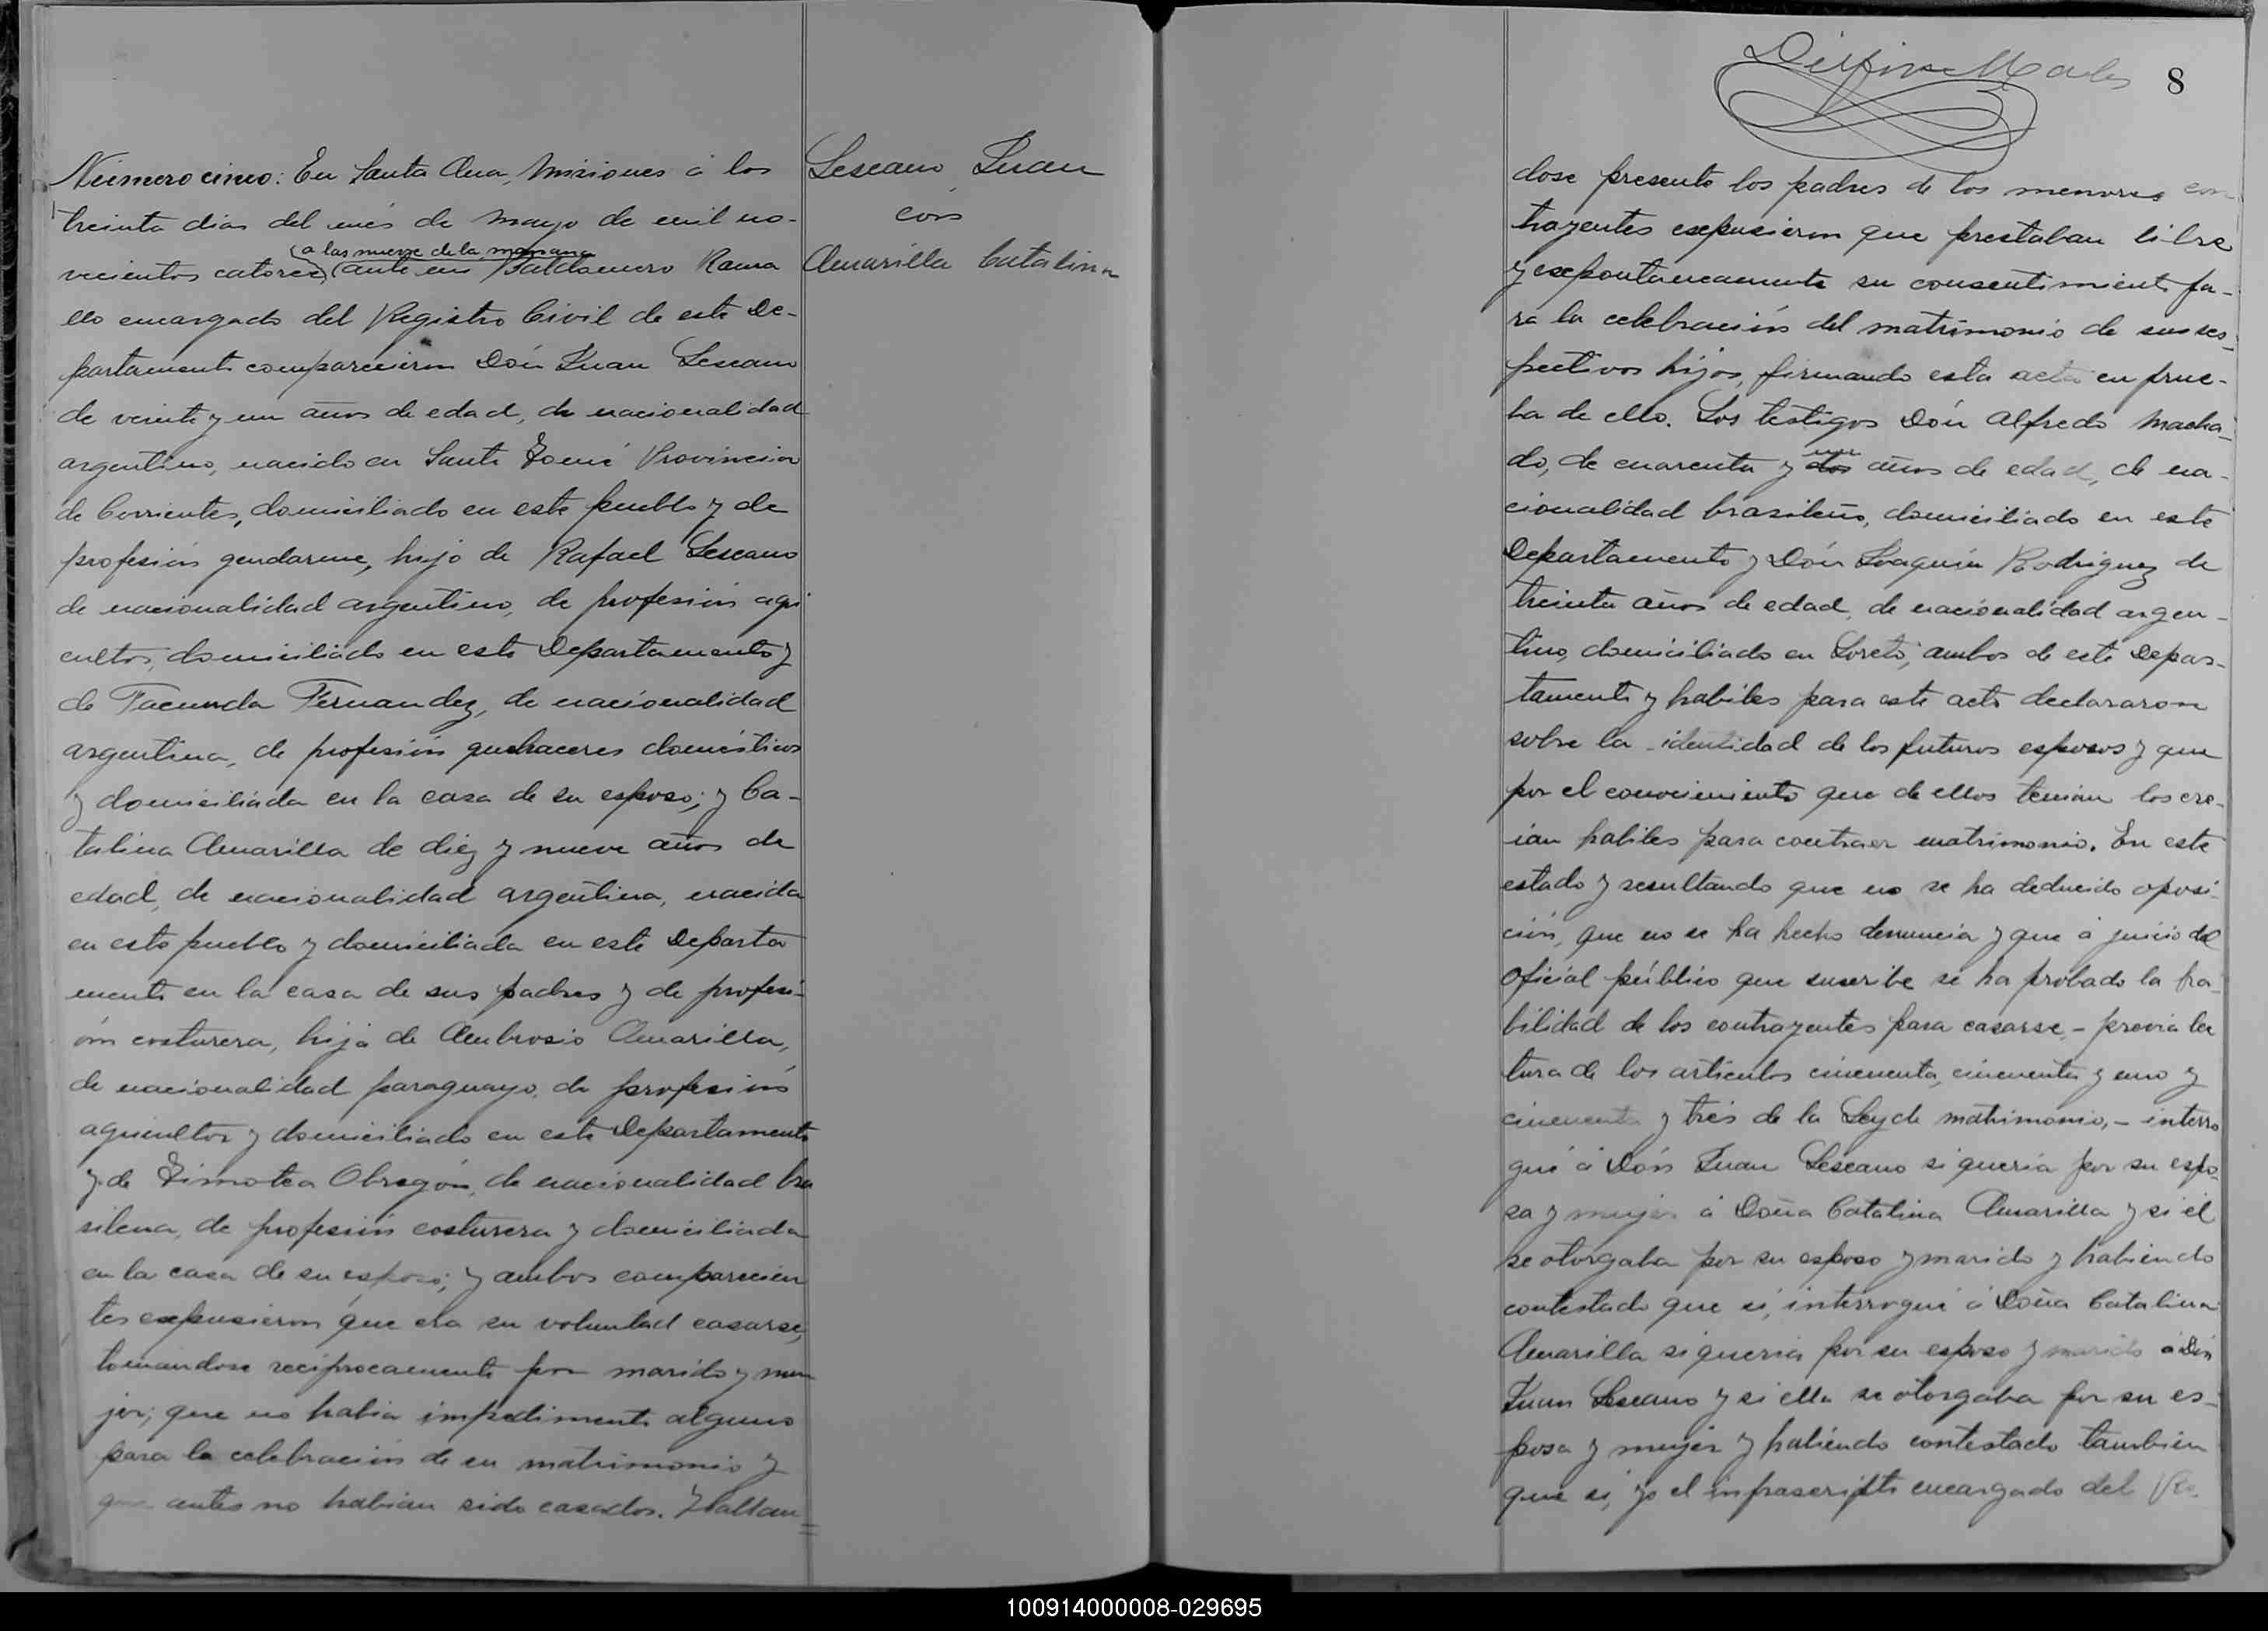 Número cinco: En Santa Ana, Misiones á los
treinta dias del més de Mayo de mil no-
(a las nueve de la mañana
vecientos catorce) (ante mi Baldomero Rama
llo encargado del Registro Civil de este De-
partamento comparecieron Dón Juan Lescano
de veinte y un años de edad, de nacionalidad
argentino, nacido en Santo Tomé Provincia
de Corrientes, domiciliado en este pueblo y de
profesión gendarme, hijo de Rafael Lescano
de nacionalidad argentino, de profesión agri
cultor, domiciliado en este Departamento y
de Facunda Fernandez, de nacionalidad
argentina, de profesión quehaceres domésticos
y domiciliada en la casa de su esposo; y Ca-
talina Amarilla de diéz y nueve años de
edad, de nacionalidad argentina, nacida
en este pueblo y domiciliada en este Departa
mento en la casa de sus padres y de profesi-
ón costurera, hija de Ambrosio Amarilla,
de nacionalidad paraguayo, de profesión
agricultor y domiciliado en este Departamento
y de Timotea Obregón, de nacionalidad bra
silena, de profesión costurera y domiciliada
en la casa de su esposo; y ambos comparecien
tes expusieron que era su voluntad casarse,
tomandose reciprocamente por marido y mu
jer; que no habia impedimento alguno
para la celebración de su matrimonio y
que antes no habian sido casados. Hallan
Lescano Juan
con
Amarilla Catalina
8
dose presente los padres de los menores con
trayentes expusieron que prestaban libre
y expontaneamente su consentimiento pa-
ra la celebración del matrimonio de sus res-
pectivos hijos, firmando esta acta en prue-
ba de ello. Los testigos Dón Alfredo Macha-
un
do, de cuarenta y dos años de edad, de na-
cionalidad brasileño, domiciliado en este
Departamento y Dón Joaquin Rodriguez de
treinta años de edad, de nacionalidad argen-
tino, domiciliado en Loreto, ambos de este Depar-
tamento y habiles para este acto declararon
sobre la identidad de los futuros esposos y que
por el conocimiento que de ellos tenian los cre-
ian habiles para contraer matrimonio. En este
estado y resultando que no se ha deducido oposi-
ción, que no se ha hecho denuncia y que á juicio del
Oficial público que suscribe se ha probado la ha-
bilidad de los contrayentes para casarse, - previa lec
tura de los articulos cincuenta, cincuenta y uno y
cincuenta y trés de la Ley de matrimonio, - interro
gué á Dón Juan Lescano si queria por su espo-
sa y mujer á Doña Catalina Amarilla y si él
se otorgaba por su esposo y marido y habiendo
contestado que si, interrogué á Doña Catalina
Amarilla si queria por su esposo y marido á Dón
Juan Lescano y si ella se otorgaba por su es-
posa y mujer y habiendo contestado tambien
que si, yo el infrascripto encargado del Re-
100914000008-029695